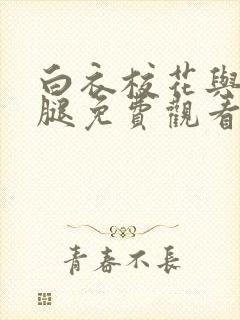 白衣校花與
腿免費觀看
青春不長